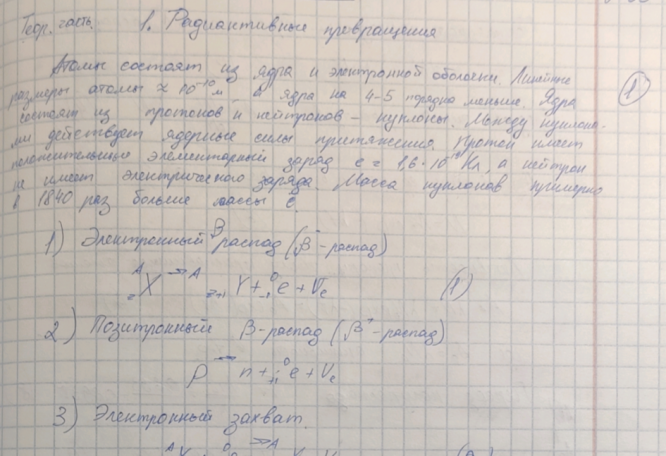 Теор. часть. 1. Радиактивные превращения
Атомы состоят из ядра и электронной оболочки. Линейные
размеры атомы ≈ 10⁻¹⁰ м, а ядра на 4-5 порядка меньше. Ядра (1)
состоят из протонов и нейтронов – нуклоны. Между нуклона-
ми действует ядерные силы притяжения. Протон имеет
положительный элементарный заряд e = 1,6·10⁻¹⁹ Кл, а нейтрон
не имеет электрического заряда. Масса нуклонов примерно
в 1840 раз больше массы ē.
1) Электронный β распад (β⁻-распад)
ᴬ_zX → ᴬ_z+1Y + ⁰_-1e + ν̃_e (1)
2) Позитронный β-распад (β⁺-распад)
p → n + ⁰_+1e + ν_e
3) Электронный захват.